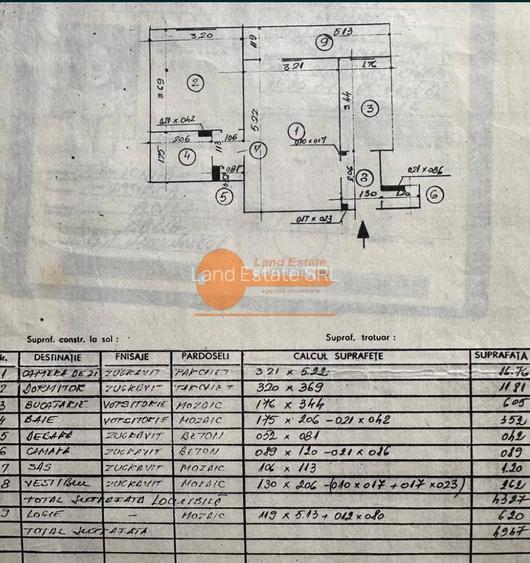 3.20
119
9
5.13
3.21
176
3.69
2
5.22
3.44
3
021 x 042
1
206
106
113
010 x 017
175
4
7
081
206
8
021 x 086
130
120
6
5
017 x 023
Land Estate
Land Estate SRL
Suprof. constr. la sol :
Suprof. trotuar :
Nr. DESTINAȚIE FNISAJE PARDOSELI CALCUL SUPRAFEȚE SUPRAFAȚA
1 CAMERA DE ZI ZUGRAVIT PARCHET 321 x 5.22 16.76
2 DORMITOR ZUGRAVIT PARCHET 320 x 369 11.81
3 BUCATARIE VOPSITORIE MOZAIC 176 x 344 605
4 BAIE VOPSITORIE MOZAIC 175 x 206 - 021 x 042 352
5 DEBARA ZUGRAVIT BETON 052 x 081 042
6 CAMARA ZUGRAVIT BETON 089 x 120 - 021 x 086 089
7 SAS ZUGRAVIT MOZAIC 106 x 113 1.20
8 VESTIBUL ZUGRAVIT MOZAIC 130 x 206 - (010 x 017 + 017 x 023) 262
TOTAL SUPRAFATA LOCUIBILĂ 4327
9 LOGIE - MOZAIC 119 x 5.13 + 012 x 080 620
TOTAL SUPRAFATA 4947